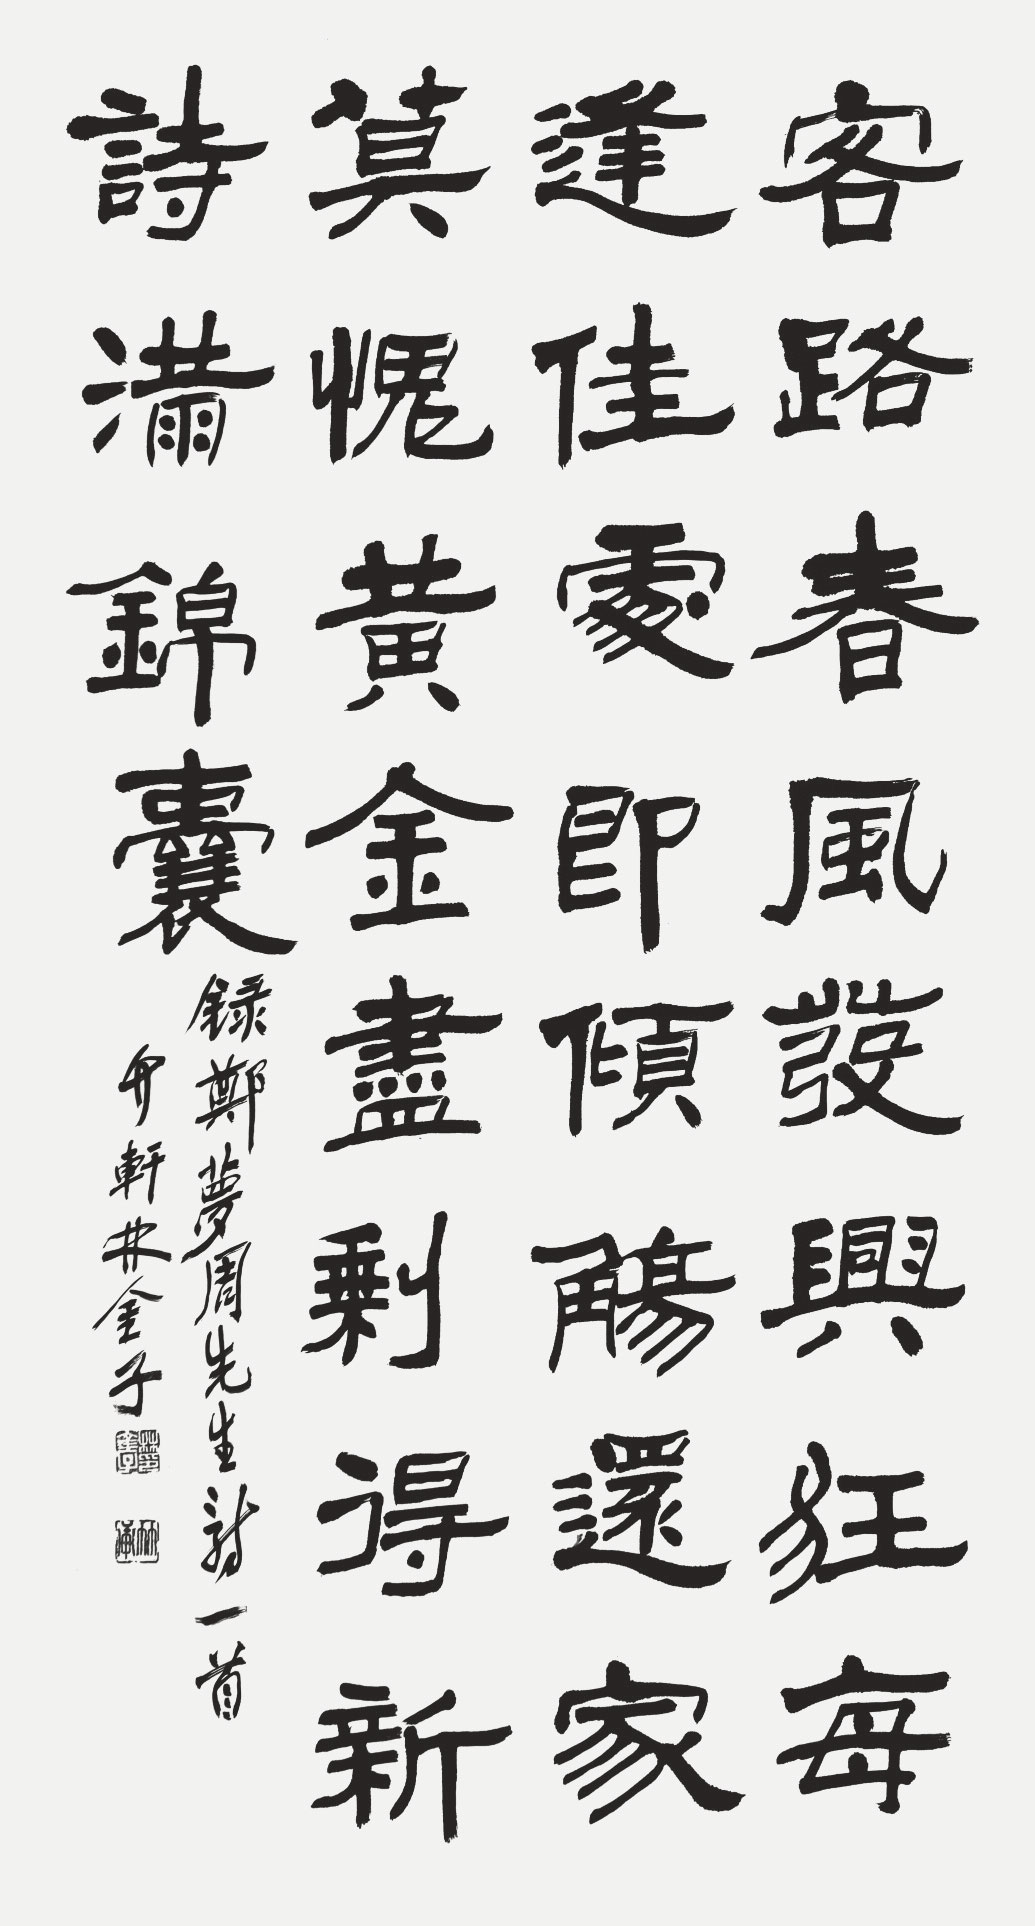 客路春風發興狂每
逢佳處即傾觴還家
莫愧黃金盡剩得新
詩滿錦囊
錄鄭夢周先生詩一首
丹軒林金子